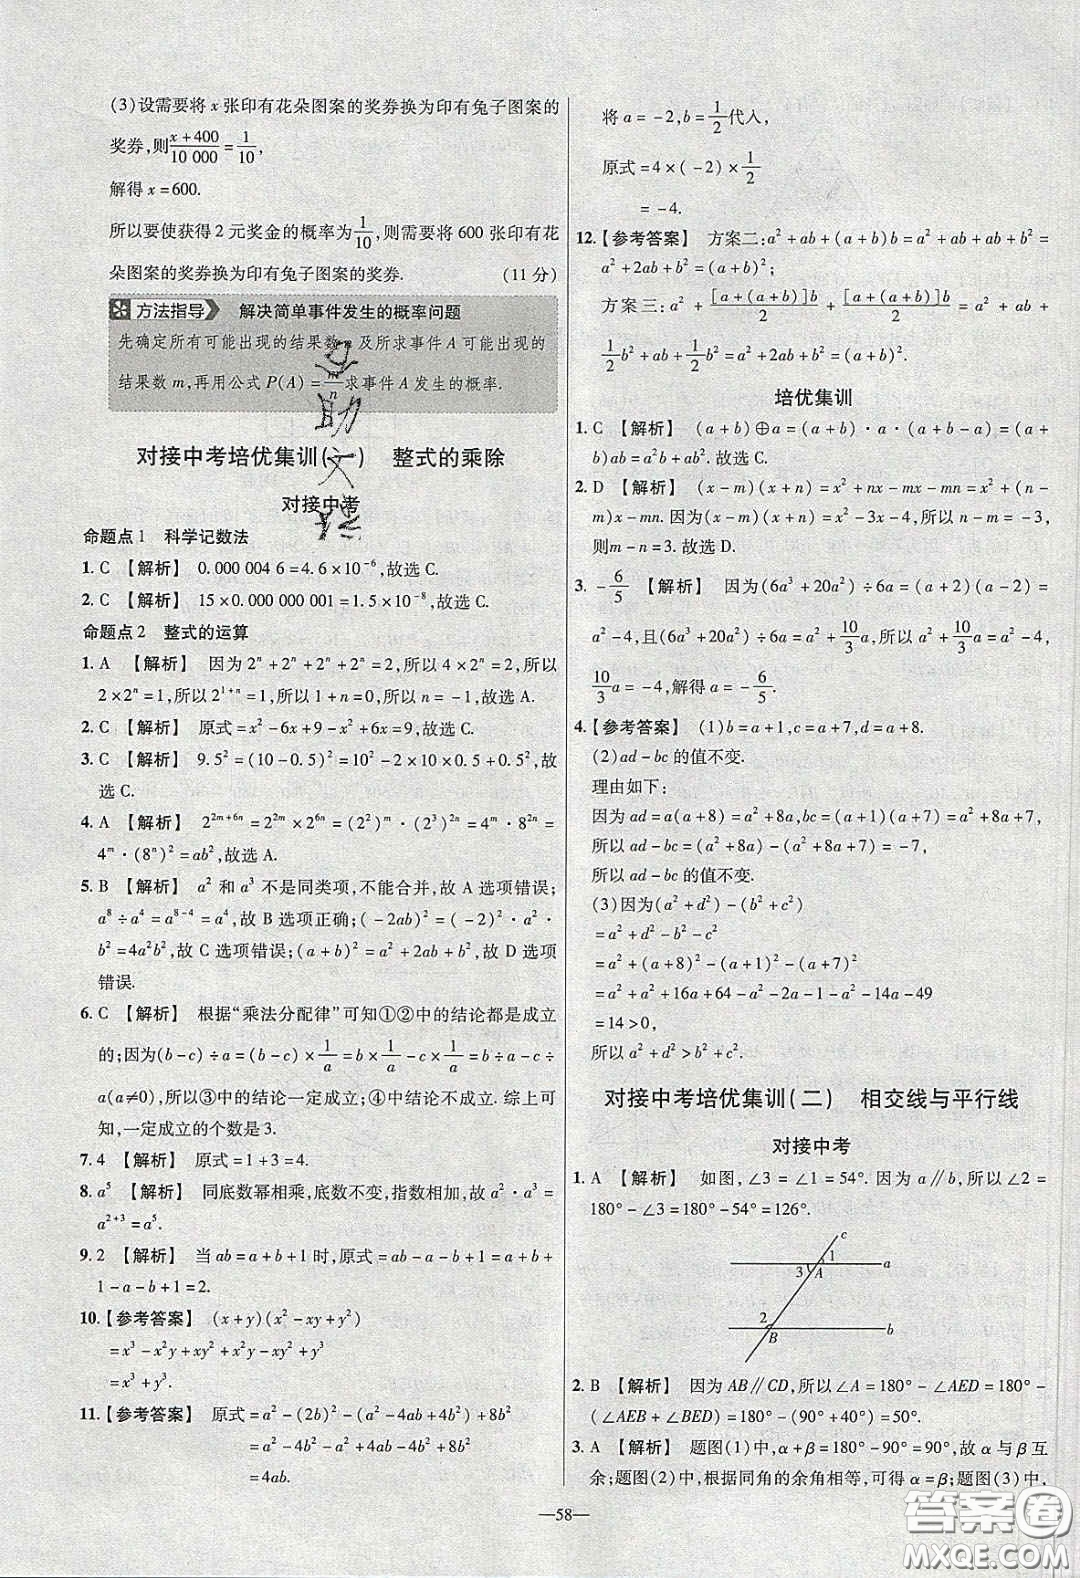 (3)设需要将 x 张印有花朵图案的奖券换为印有兔子图案的
奖券,则(x+400)/(10 000)=1/10,
解得 x=600.
所以要使获得 2 元奖金的概率为1/10,则需要将 600 张印有花
朵图案的奖券换为印有兔子图案的奖券. (11 分)
方法指导 解决简单事件发生的概率问题
先确定所有可能出现的结果数 n 及所求事件 A 可能出现的
结果数 m,再用公式 P(A)=m/n求事件 A 发生的概率.
对接中考培优集训(一) 整式的乘除
对接中考
命题点 1 科学记数法
1. C 【解析】 0.000 004 6=4.6×10⁻⁶,故选 C.
2. C 【解析】 15×0.000 000 001=1.5×10⁻⁸,故选 C.
命题点 2 整式的运算
1. A 【解析】 因为 2ⁿ+2ⁿ+2ⁿ+2ⁿ=2,所以 4×2ⁿ=2,所以
2×2ⁿ=1,所以 2¹⁺ⁿ=1,所以 1+n=0,所以 n=-1,故选 A.
2. C 【解析】 原式=x²-6x+9-x²+6x=9.故选 C.
3. C 【解析】 9.5²=(10-0.5)²=10²-2×10×0.5+0.5²,故
选 C.
4. A 【解析】 2²ᵐ⁺⁶ⁿ=2²ᵐ×2⁶ⁿ=(2²)ᵐ·(2³)²ⁿ=4ᵐ·8²ⁿ=
4ᵐ·(8ⁿ)²=ab²,故选 A.
5. B 【解析】 a² 和 a³ 不是同类项,不能合并,故 A 选项错误;
a⁸÷a⁴=a⁸⁻⁴=a⁴,故 B 选项正确;(-2ab)²=(-2)²·a²·
b²=4a²b²,故 C 选项错误;(a+b)²=a²+2ab+b²,故 D 选项
错误.
6. C 【解析】 根据“乘法分配律”可知①②中的结论都是成立
的;因为(b-c)÷a=(b-c)×1/a=b×1/a-c×1/a=b÷a-c÷
a(a≠0),所以③中的结论一定成立;④中结论不成立.综上可
知,一定成立的个数是 3.
7. 4 【解析】 原式=1+3=4.
8. a⁵ 【解析】 同底数幂相乘,底数不变,指数相加,故 a²·a³=
a²⁺³=a⁵.
9. 2 【解析】 当 ab=a+b+1 时,原式=ab-a-b+1=a+b+
1-a-b+1=2.
10. 【参考答案】 (x+y)(x²-xy+y²)
=x³-x²y+xy²+x²y-xy²+y³
=x³+y³.
11. 【参考答案】 原式=a²-(2b)²-(a²-4ab+4b²)+8b²
=a²-4b²-a²+4ab-4b²+8b²
=4ab.
将 a=-2,b=1/2代入,
原式=4×(-2)×1/2
=-4.
12. 【参考答案】 方案二:a²+ab+(a+b)b=a²+ab+ab+b²=
a²+2ab+b²=(a+b)²;
方案三:a²+[a+(a+b)]b/2+[a+(a+b)]b/2=a²+ab+
1/2b²+ab+1/2b²=a²+2ab+b²=(a+b)².
培优集训
1. C 【解析】 (a+b)⊕a=(a+b)·a·(a+b-a)=(a+
b)ab=a²b+ab².故选 C.
2. D 【解析】 (x-m)(x+n)=x²+nx-mx-mn=x²+(n-
m)x-mn.因为(x-m)(x+n)=x²-3x-4,所以 n-m=-3,
则m-n=3.故选 D.
3. -6/5 【解析】 因为(6a³+20a²)÷6a=(a+2)(a-2)=
a²-4,且(6a³+20a²)÷6a=a²+10/3a,所以 a²+10/3a=a²-4,
10/3a=-4,解得 a=-6/5.
4. 【参考答案】 (1)b=a+1,c=a+7,d=a+8.
(2)ad-bc 的值不变.
理由如下:
因为 ad=a(a+8)=a²+8a,bc=(a+1)(a+7)=a²+8a+7,
所以 ad-bc=(a²+8a)-(a²+8a+7)=-7,
所以 ad-bc 的值不变.
(3)因为(a²+d²)-(b²+c²)
=a²+d²-b²-c²
=a²+(a+8)²-(a+1)²-(a+7)²
=a²+a²+16a+64-a²-2a-1-a²-14a-49
=14>0,
所以 a²+d²>b²+c².
对接中考培优集训(二) 相交线与平行线
对接中考
1. A 【解析】 如图,∠3=∠1=54°.因为 a∥b,所以∠2=
180°-∠3=180°-54°=126°.
c
1
a
3
A
2
B
b
2. B 【解析】 因为 AB∥CD,所以∠A=180°-∠AED=180°-
(∠AEB+∠BED)=180°-(90°+40°)=50°.
3. A 【解析】 题图(1)中,α+β=180°-90°=90°,故 α 与 β 互
余;题图(2)中,根据同角的余角相等,可得 α=β;题图(3)中,
—58—
答案圈
MXQE.COM